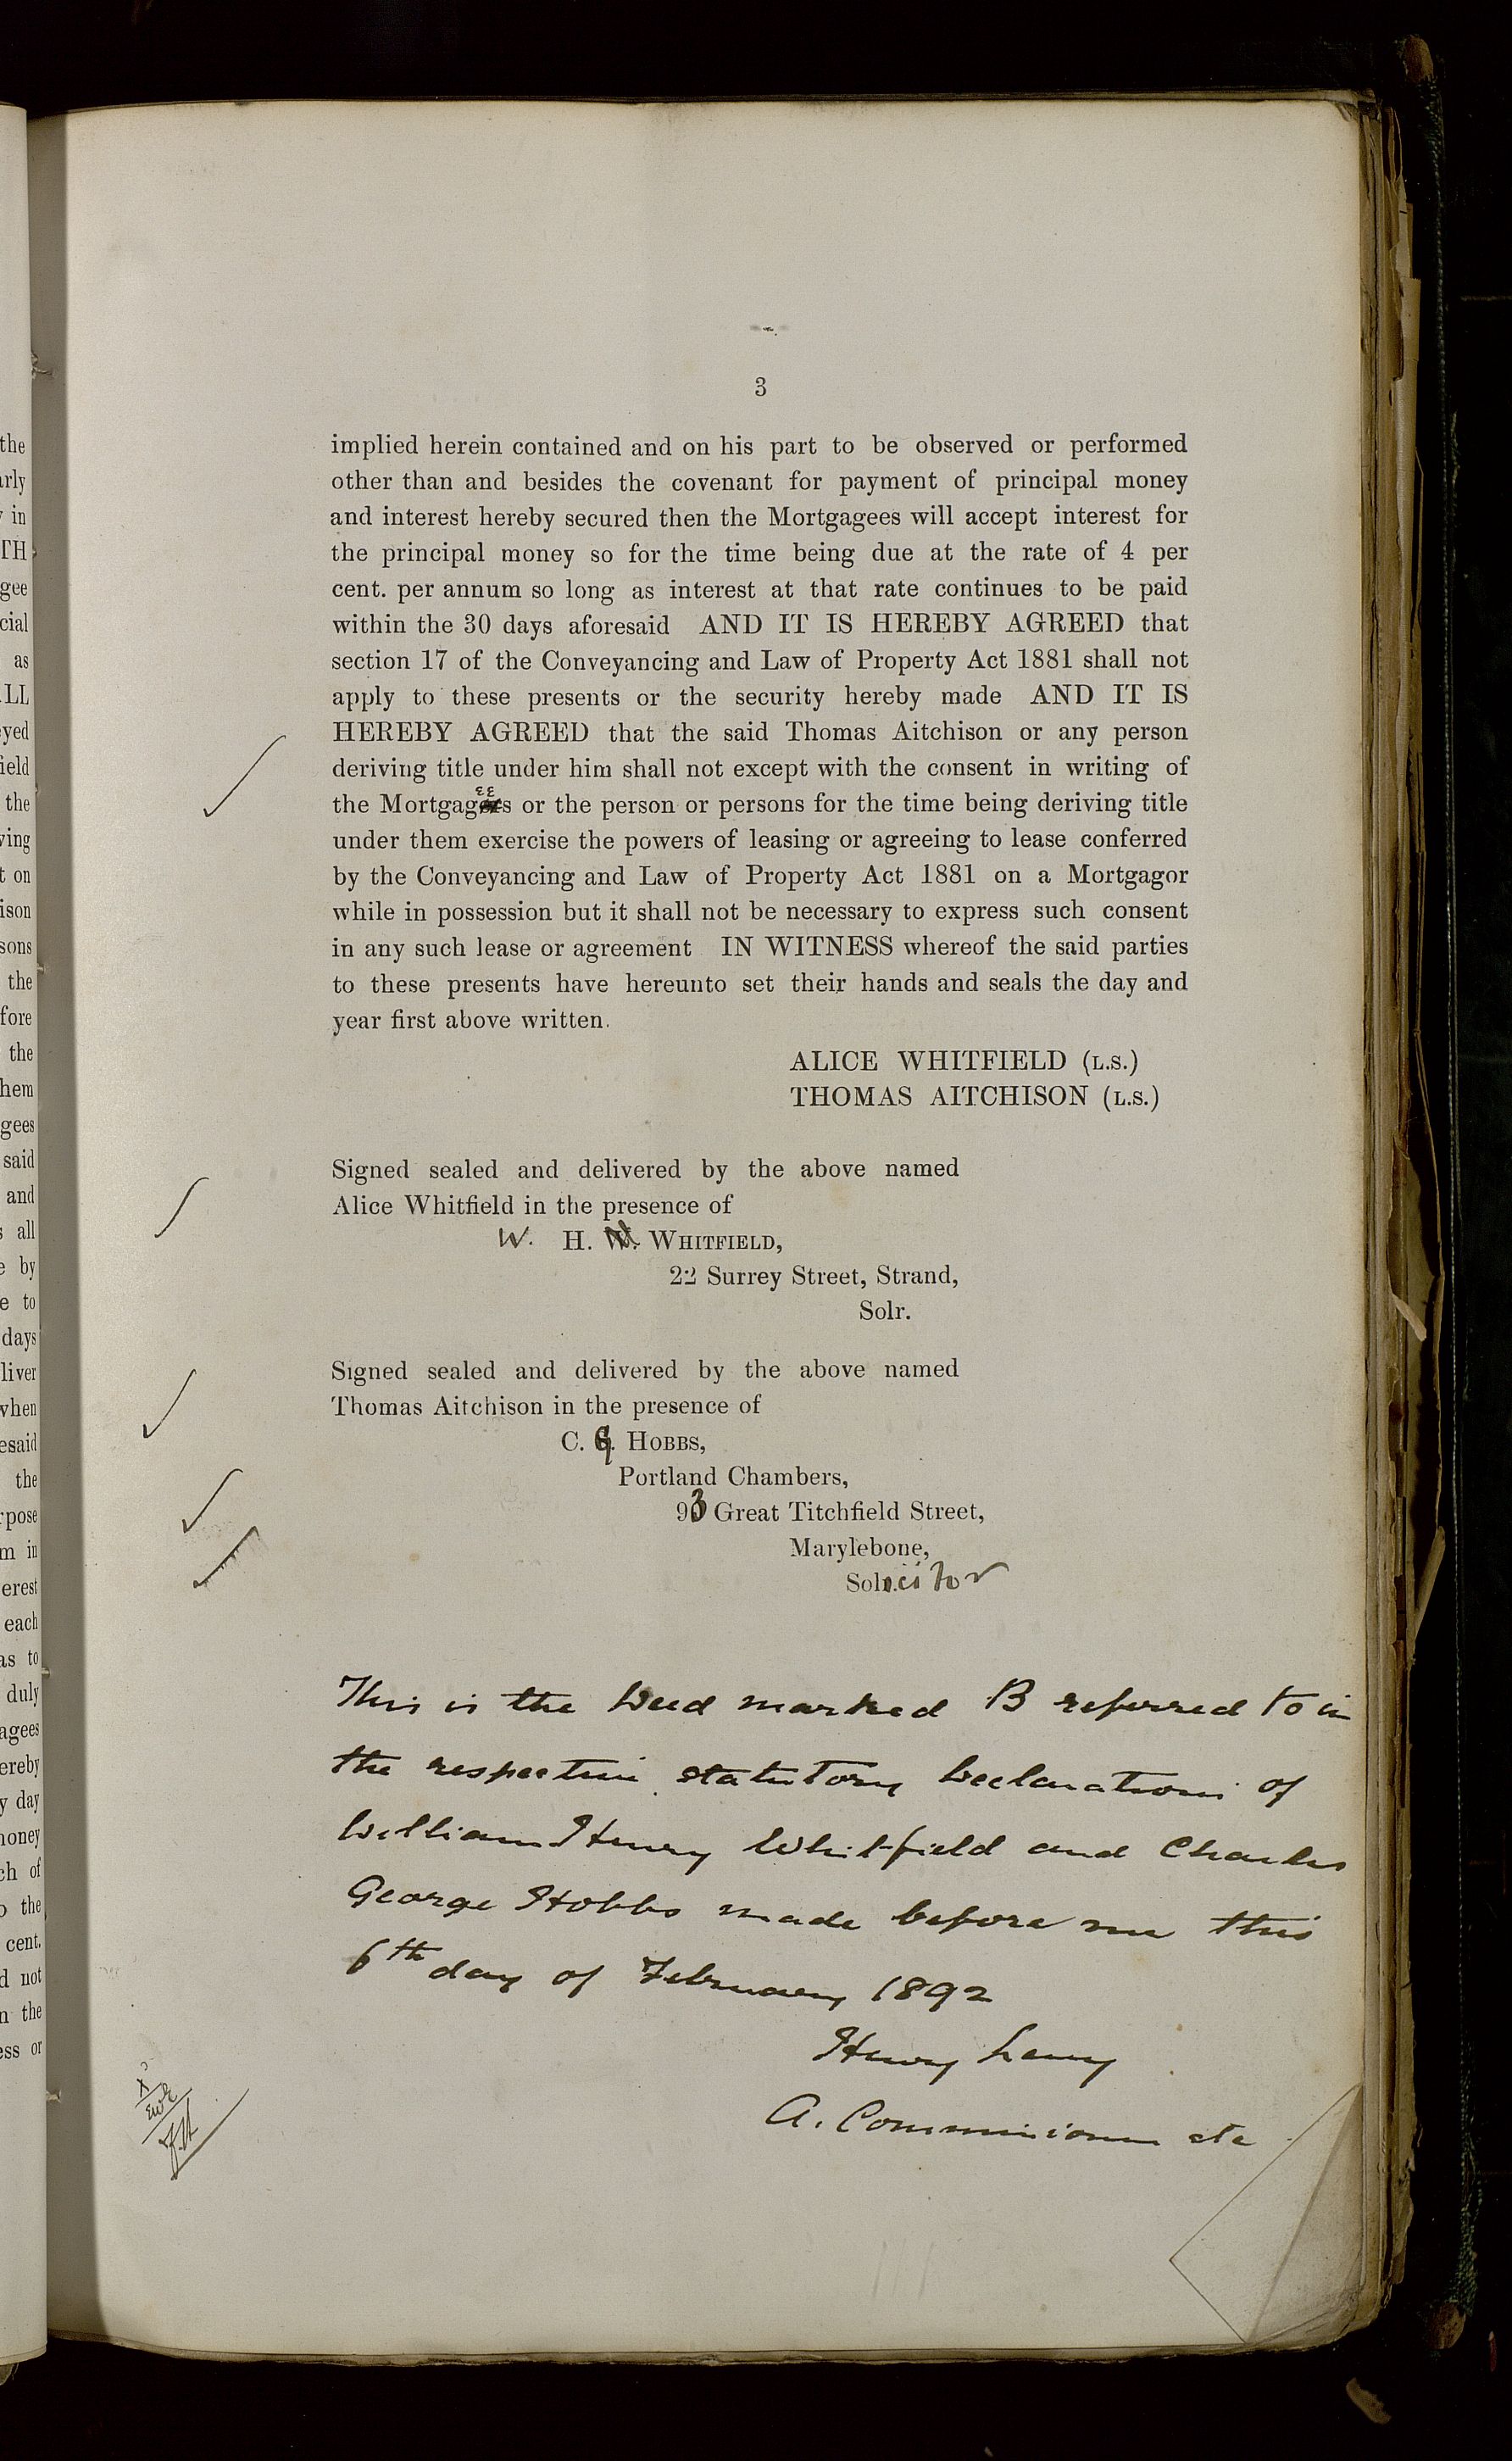 3
implied herein contained and on his part to be observed or performed
other than and besides the covenant for payment of principal money
and interest hereby secured then the Mortgagees will accept interest for
the principal money so for the time being due at the rate of 4 per
cent. per annum so long as interest at that rate continues to be paid
within the 30 days aforesaid AND IT IS HEREBY AGREED that
section 17 of the Conveyancing and Law of Property Act 1881 shall not
apply to these presents or the security hereby made AND IT IS
HEREBY AGREED that the said Thomas Aitchison or any person
deriving title under him shall not except with the consent in writing of
the Mortgagees or the person or persons for the time being deriving title
under them exercise the powers of leasing or agreeing to lease conferred
by the Conveyancing and Law of Property Act 1881 on a Mortgagor
while in possession but it shall not be necessary to express such consent
in any such lease or agreement IN WITNESS whereof the said parties
to these presents have hereunto set their hands and seals the day and
year first above written.
ALICE WHITFIELD (L.S.)
THOMAS AITCHISON (L.S.)
Signed sealed and delivered by the above named
Alice Whitfield in the presence of
W. H. WHITFIELD,
22 Surrey Street, Strand,
Solr.
Signed sealed and delivered by the above named
Thomas Aitchison in the presence of
C. G. HOBBS,
Portland Chambers,
93 Great Titchfield Street,
Marylebone,
Solicitor
This is the Deed marked B referred to in
the respective statutory Declarations of
William Henry Whitfield and Charles
George Hobbs made before me this
6th day of February 1892
Henry
A. Commissioner etc